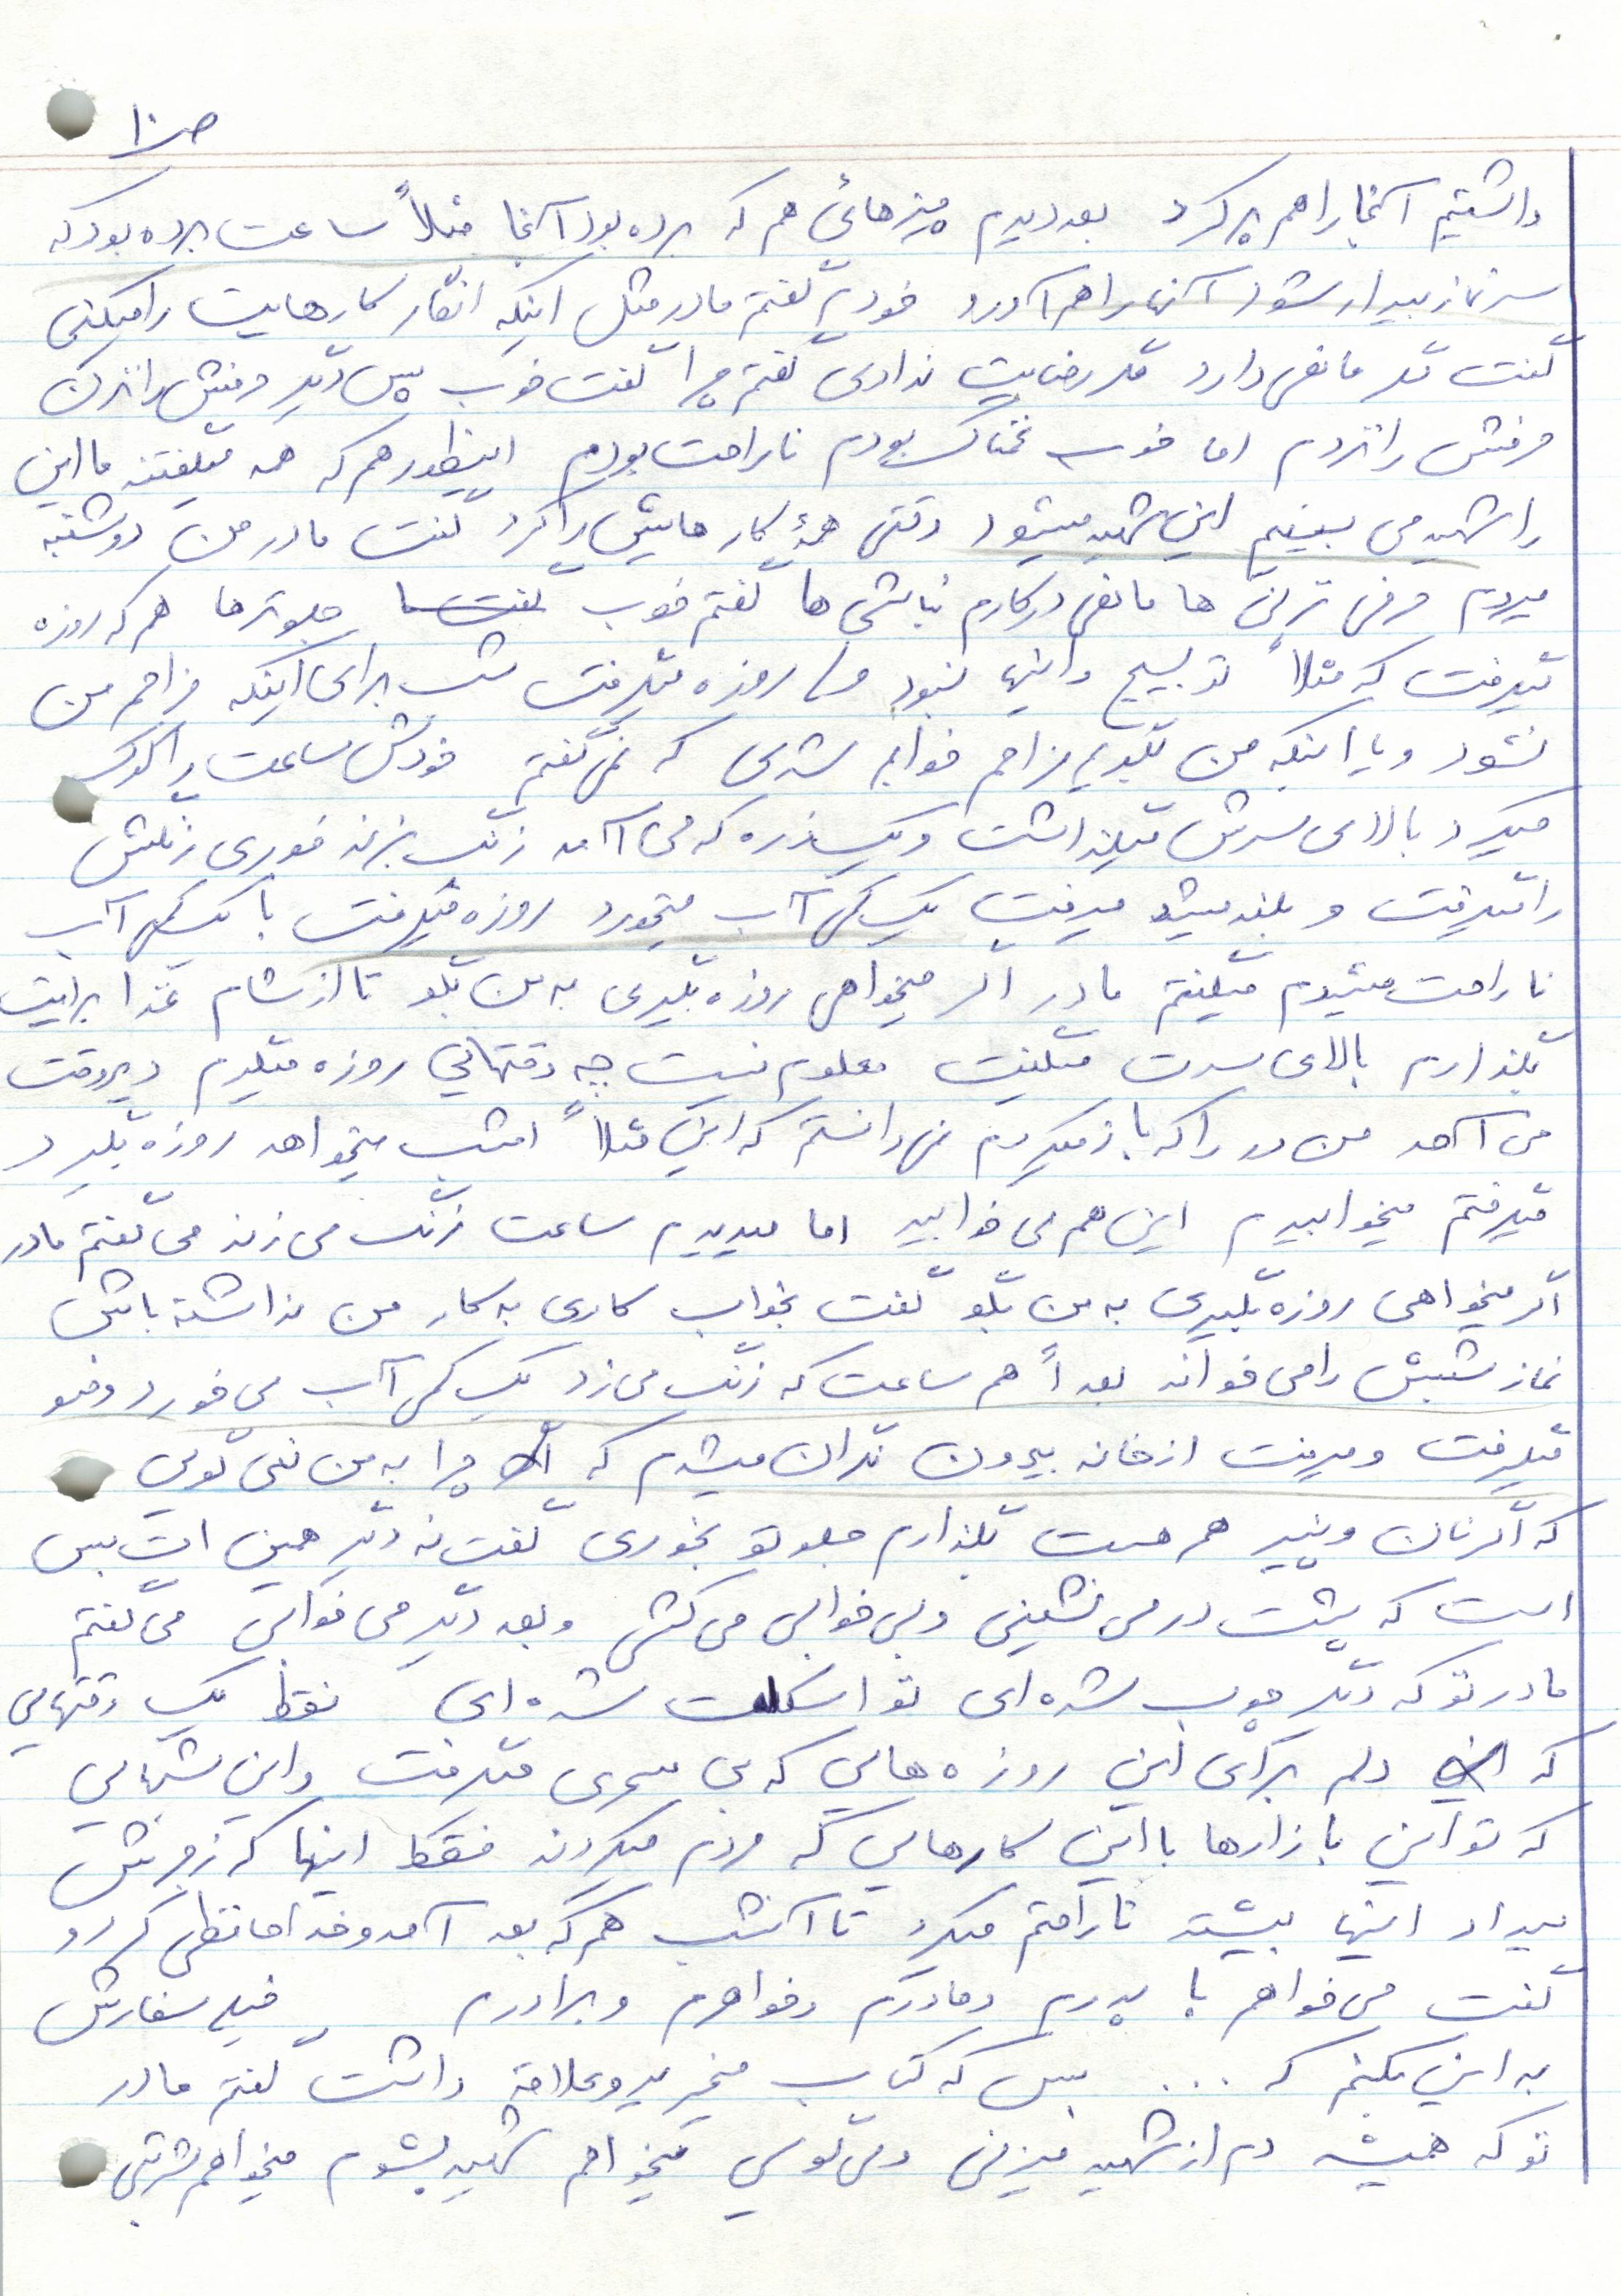 ص ۱۰
داشتیم آنجا را هم پر کرد بعد دیدم چیزهائی هم که برده بود آنجا مثلاً ساعت برده بود که
سر نماز بیدار شود آنها را هم آورد خودم گفتم مادر مثل اینکه انگار کارهایت را میکنی
گفت مگر مانعی دارد مگر رضایت نداری گفتم چرا گفت خوب پس دیگر حرفش را نزن
حرفش را نزدم اما خوب غمناک بودم ناراحت بودم اینطور هم که همه میگفتند ما این
را شهید می بینیم این شهید میشود وقتی همهٔ کارهایش را کرد گفت مادر من دوشنبه
میروم حرفی نزنی ها مانعی در کارم نباشی ها گفتم خوب جلوترها هم که روزه
میگرفت که مثلاً تو بسیج و اینها نبود و روزه میگرفت شب برای اینکه مزاحم من
نشود و یا اینکه من بگویم مزاحم خوابم شدی که نمی گفتم خودش ساعت را کوک
میکرد بالای سرش میگذاشت و یک ذره که می آمد زنگ بزند فوری زنگش
را میگرفت و بلند میشد میرفت یک کمی آب میخورد روزه میگرفت با یک کمی آب
ناراحت میشدم میگفتم مادر اگر میخواهی روزه بگیری به من بگو تا از شام غذا برایت
بگذارم بالای سرت میگفت معلوم نیست چه وقتهائی روزه میگیرم دیروقت
می آمد من در را که باز میکردم نمی دانستم که این مثلاً امشب میخواهد روزه بگیرد
میرفتم میخوابیدم این هم می خوابید اما میدیدم ساعت زنگ می زند می گفتم مادر
اگر میخواهی روزه بگیری به من بگو گفت بخواب کاری به کار من نداشته باش
نماز شبش را می خواند بعداً هم ساعت که زنگ می زد یک کمی آب می خورد وضو
میگرفت و میرفت از خانه بیرون نگران میشدم که چرا به من نمی گویی
که اگر نان و پنیر هم هست بگذارم جلو تو بخوری گفت نه دیگر همین ات بس
است که پشت در می نشینی و بی خوابی می کشی و بعد دیگر می خوابی می گفتم
مادر تو که دیگر چوب شده ای تو اسکلت شده ای فقط یک وقتهایی
که دلم برای این روزه هایی که بی سحری میگرفت و این شبهایی
که تو این بازارها با این کارهایی که مردم میکردند فقط اینها که زجرش
میداد اینها بیشتر ناراحتم میکرد تا آنشب هم که بعد آمد و خداحافظی کرد
گفت می خواهم با پدرم و مادرم و خواهرم و برادرم خیلی سفارش
به این بکنم که ... بس که کتاب میخرید و علاقه داشت گفتم مادر
تو که همیشه دم از شهید میزنی و می گویی میخواهم شهید بشوم میخواهم شربتی